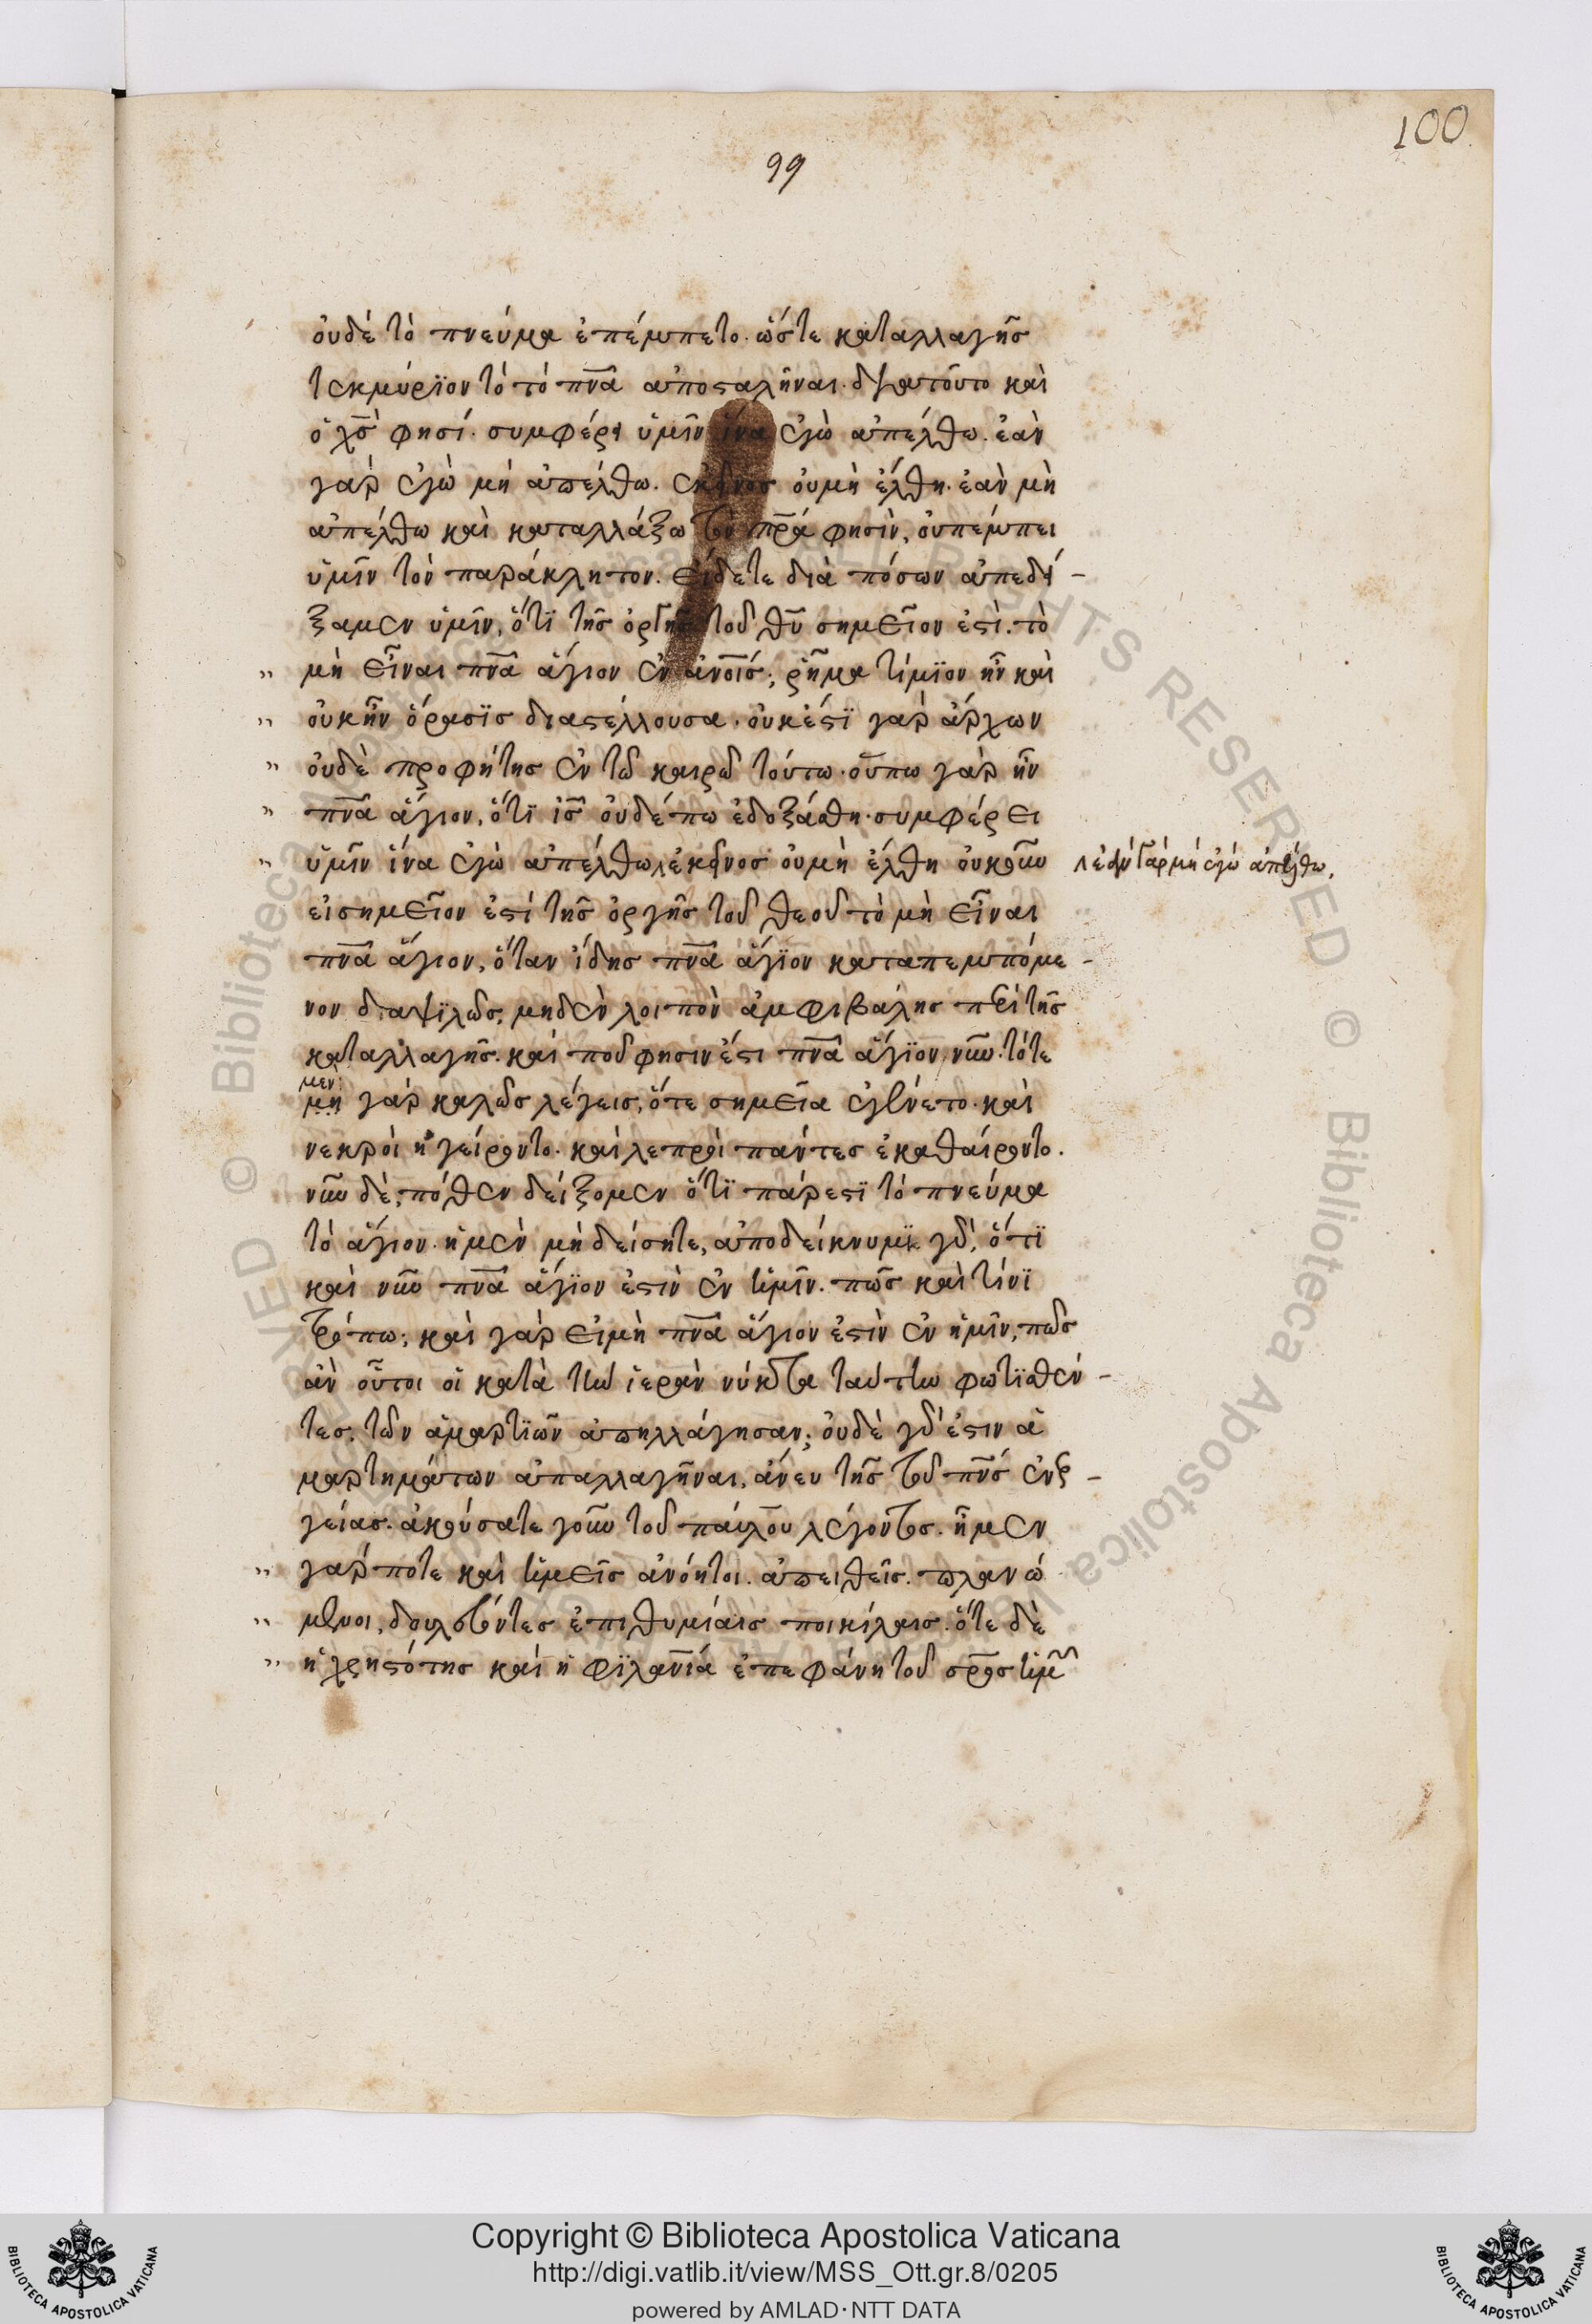 100
99
οὐδέ τὸ πνεύμα ἐπέμπετο. ὥστε καταλλαγῆς
τεκμύρϊον τὸ τό πν̅α̅ ἀποσταλῆναι. διατοῦτο καὶ
ὁ χς̅ φησί. συμφέρει ὑμῖν ἵνα ἐγὼ ἀπέλθω. ἐὰν
γὰρ ἐγὼ μή ἀπέλθω. ἐκεῖνος οὐμὴ ἔλθη. ἐὰν μὴ
ἀπέλθω καὶ καταλλάξω τὸν πρ̅α̅ φησὶν, οὐπέμπει
ὑμῖν τὸν παράκλητον. Εἴδετε διὰ πόσων ἀπεδεί-
ξαμεν ὑμῖν, ὅτϊ τῆς ὀργῆς τοῦ θυ̅ σημεῖον ἐστὶ. τὸ
" μὴ εἶναι πν̅α̅ ἅγιον ἐν ἀν̅οι̅ς; ῥῆμα τίμϊον ἦν καὶ
" οὐκῆν ὅρασϊς διαστέλλουσα. οὐκέστϊ γὰρ ἄρχων
" οὐδὲ προφήτης ἐν τῶ καιρῶ τούτω. οὔπω γὰρ ἦν
" πν̅α̅ ἅγιον, ὅτϊ ις̅ οὐδέπω ἐδοξάσθη. συμφέρει
" ὑμῖν ἵνα ἐγὼ ἀπέλθω⁁ ἐκεῖνος οὐμὴ ἔλθη οὐκοῦν
⁁ ἐὰν γὰρ μή ἐγώ ἀπέλθω.
εἰσημεῖον ἐστί τῆς ὀργῆς τοῦ θεοῦ τὸ μὴ εἶναι
πν̅α̅ ἅγιον, ὅταν ἴδης πν̅α̅ ἅγϊον καταπεμπόμε-
νον διαψϊλῶς, μηδὲν λοιπὸν ἀμφιβάλης περὶ τῆς
καταλλαγῆς. καὶ ποῦ φησιν ἐστι πν̅α̅ ἅγϊον νῦν. τότε
μεν
μὴ γὰρ καλῶς λέγεις, ὅτε σημεῖα ἐγίνετο. καὶ
νεκροὶ ἠγείροντο. καὶ λεπροὶ παντες ἐκαθαίροντο.
νῦν δὲ, πόθεν δείξομεν ὅτϊ πάρεστϊ τὸ πνεύμα
τὸ ἅγιον. ἡμεν μὴ δείσητε, ἀποδείκνυμϊ γὰρ, ὅτϊ
καὶ νῦν πν̅α̅ ἅγϊον ἐστὶν ἐν ὑμῖν. πῶς καὶ τίνϊ
τρόπω; καὶ γὰρ εἰμὴ πν̅α̅ ἅγιον ἐστὶν ἐν ἡμῖν, πῶς
ἀν οὗτοι οἱ κατὰ τὴν ἱερὰν νύκτα ταύτην φωτϊσθέν-
τες. τῶν ἁμαρτϊῶν ἀπηλλάγησαν; οὐδὲ γὰρ ἐστιν ἁ
μαρτημάτων ἀπαλλαγῆναι, ἄνευ τῆς τοῦ πν̅ς̅ ἐνερ-
γείας. ἀκούσατε γοῦν τοῦ παύλου λέγοντος. ἦμεν
" γάρ ποτε καὶ ὑμεῖς ἀνόητοι. ἀπειθεῖς. πλανώ
" μενοι, δουλεύοντες ἐπιθυμίαις ποικίλαις. ὅτε δὲ
" ἡ χρηστότης καὶ ἡ φϊλαν̅ία ἐπεφάνη τοῦ σρ̅ος ὑμῶν
Copyright © Biblioteca Apostolica Vaticana
http://digi.vatlib.it/view/MSS_Ott.gr.8/0205
powered by AMLAD·NTT DATA